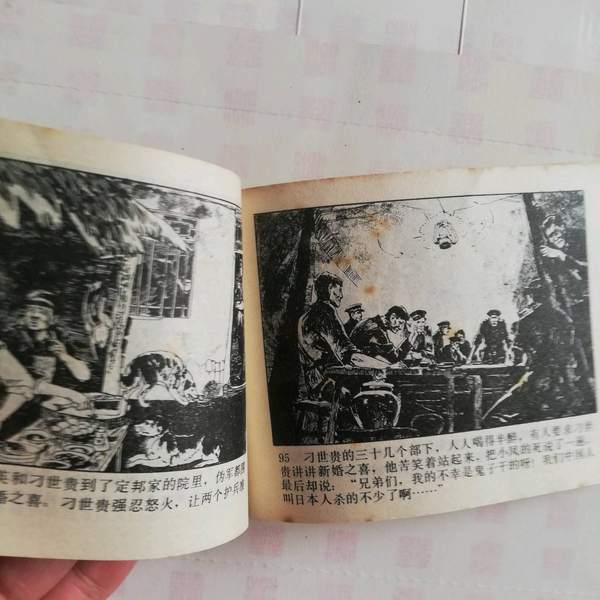 英和刁世贵到了定邦家的院里，伪军都围
婚之喜。刁世贵强忍怒火，让两个护兵
95 刁世贵的三十几个部下，人人喝得半醉，有人要求刁世
贵讲讲新婚之喜，他苦笑着站起来，把小凤的死说了一遍，
最后却说：“兄弟们，我的不幸是鬼子干的呀！我们中国人
叫日本人杀的不少了啊……”